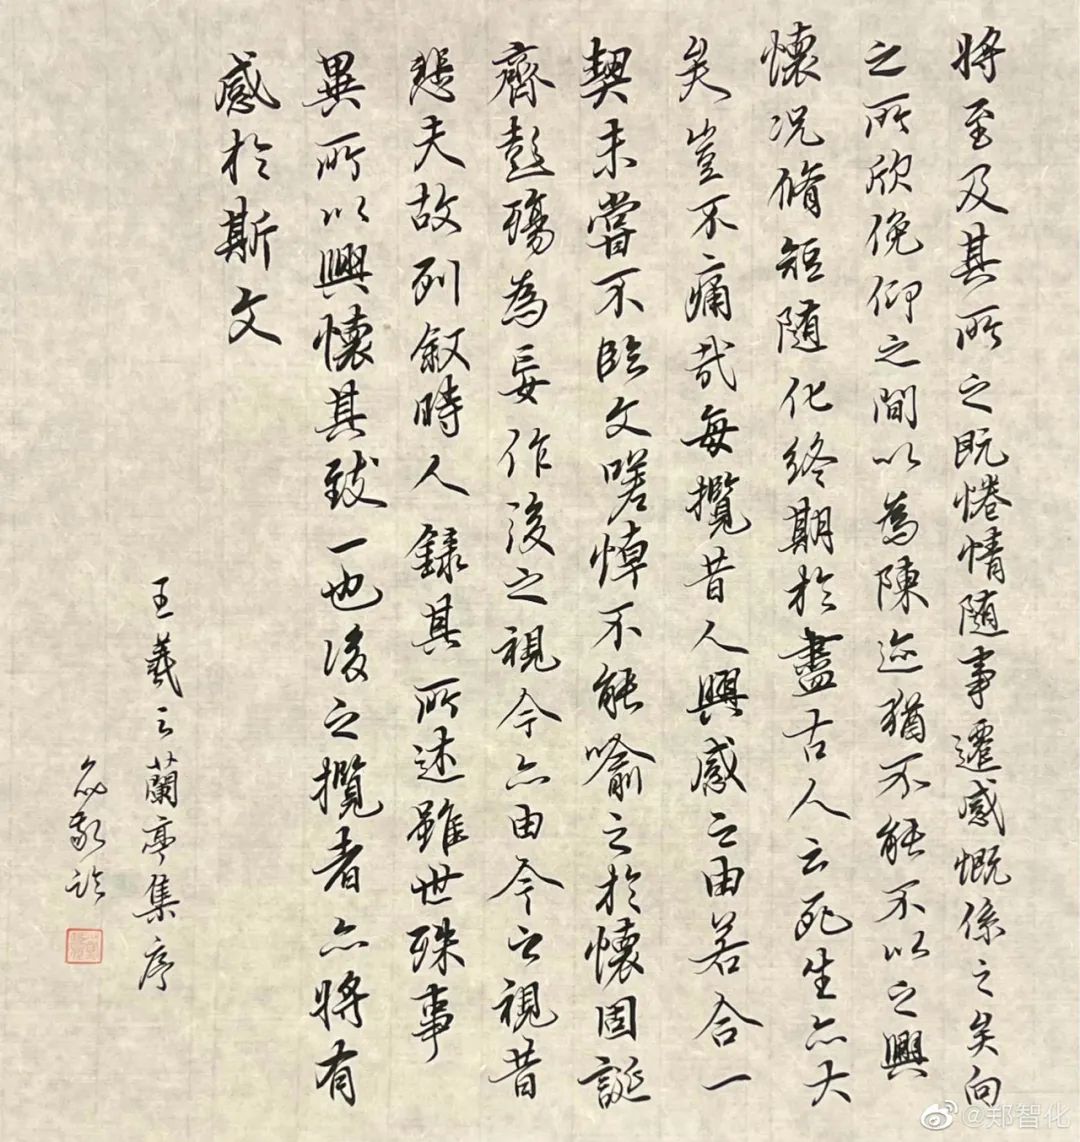 將至及其所之既惓情随事遷感慨係之矣向
之所欣俛仰之間以為陳迹猶不能不以之興
懷況脩短随化終期於盡古人云死生亦大
矣豈不痛哉每攬昔人興感之由若合一
契未嘗不臨文嗟悼不能喻之於懷固誕
齊彭殤為妄作後之視今亦由今之視昔
悲夫故列叙時人録其所述雖世殊事
異所以興懷其致一也後之攬者亦將有
感於斯文
王羲之蘭亭集序
@郑智化